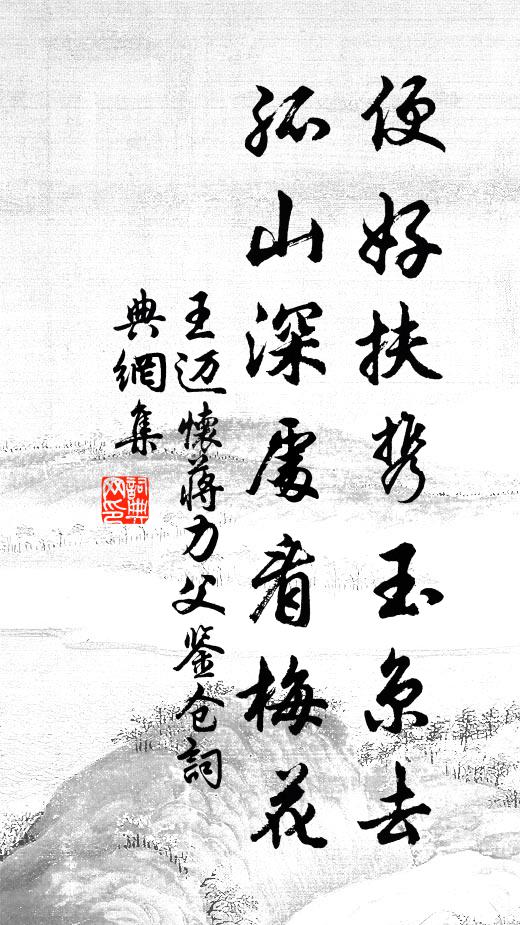 便好扶携玉京去
孤山深處看梅花
王迈懷蒋力父鉴仓詞
典網集
詞典网印